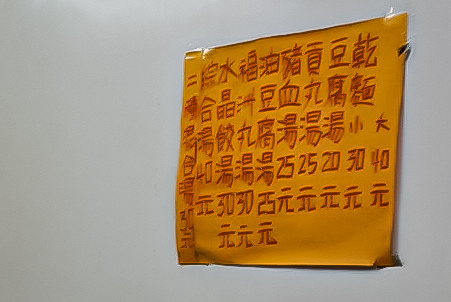 乾麵小30元大40元
豆腐湯20元
貢丸湯25元
豬血湯25元
油豆腐湯25元
福州丸湯30元
水晶餃湯30元
綜合湯40元
二種合湯元